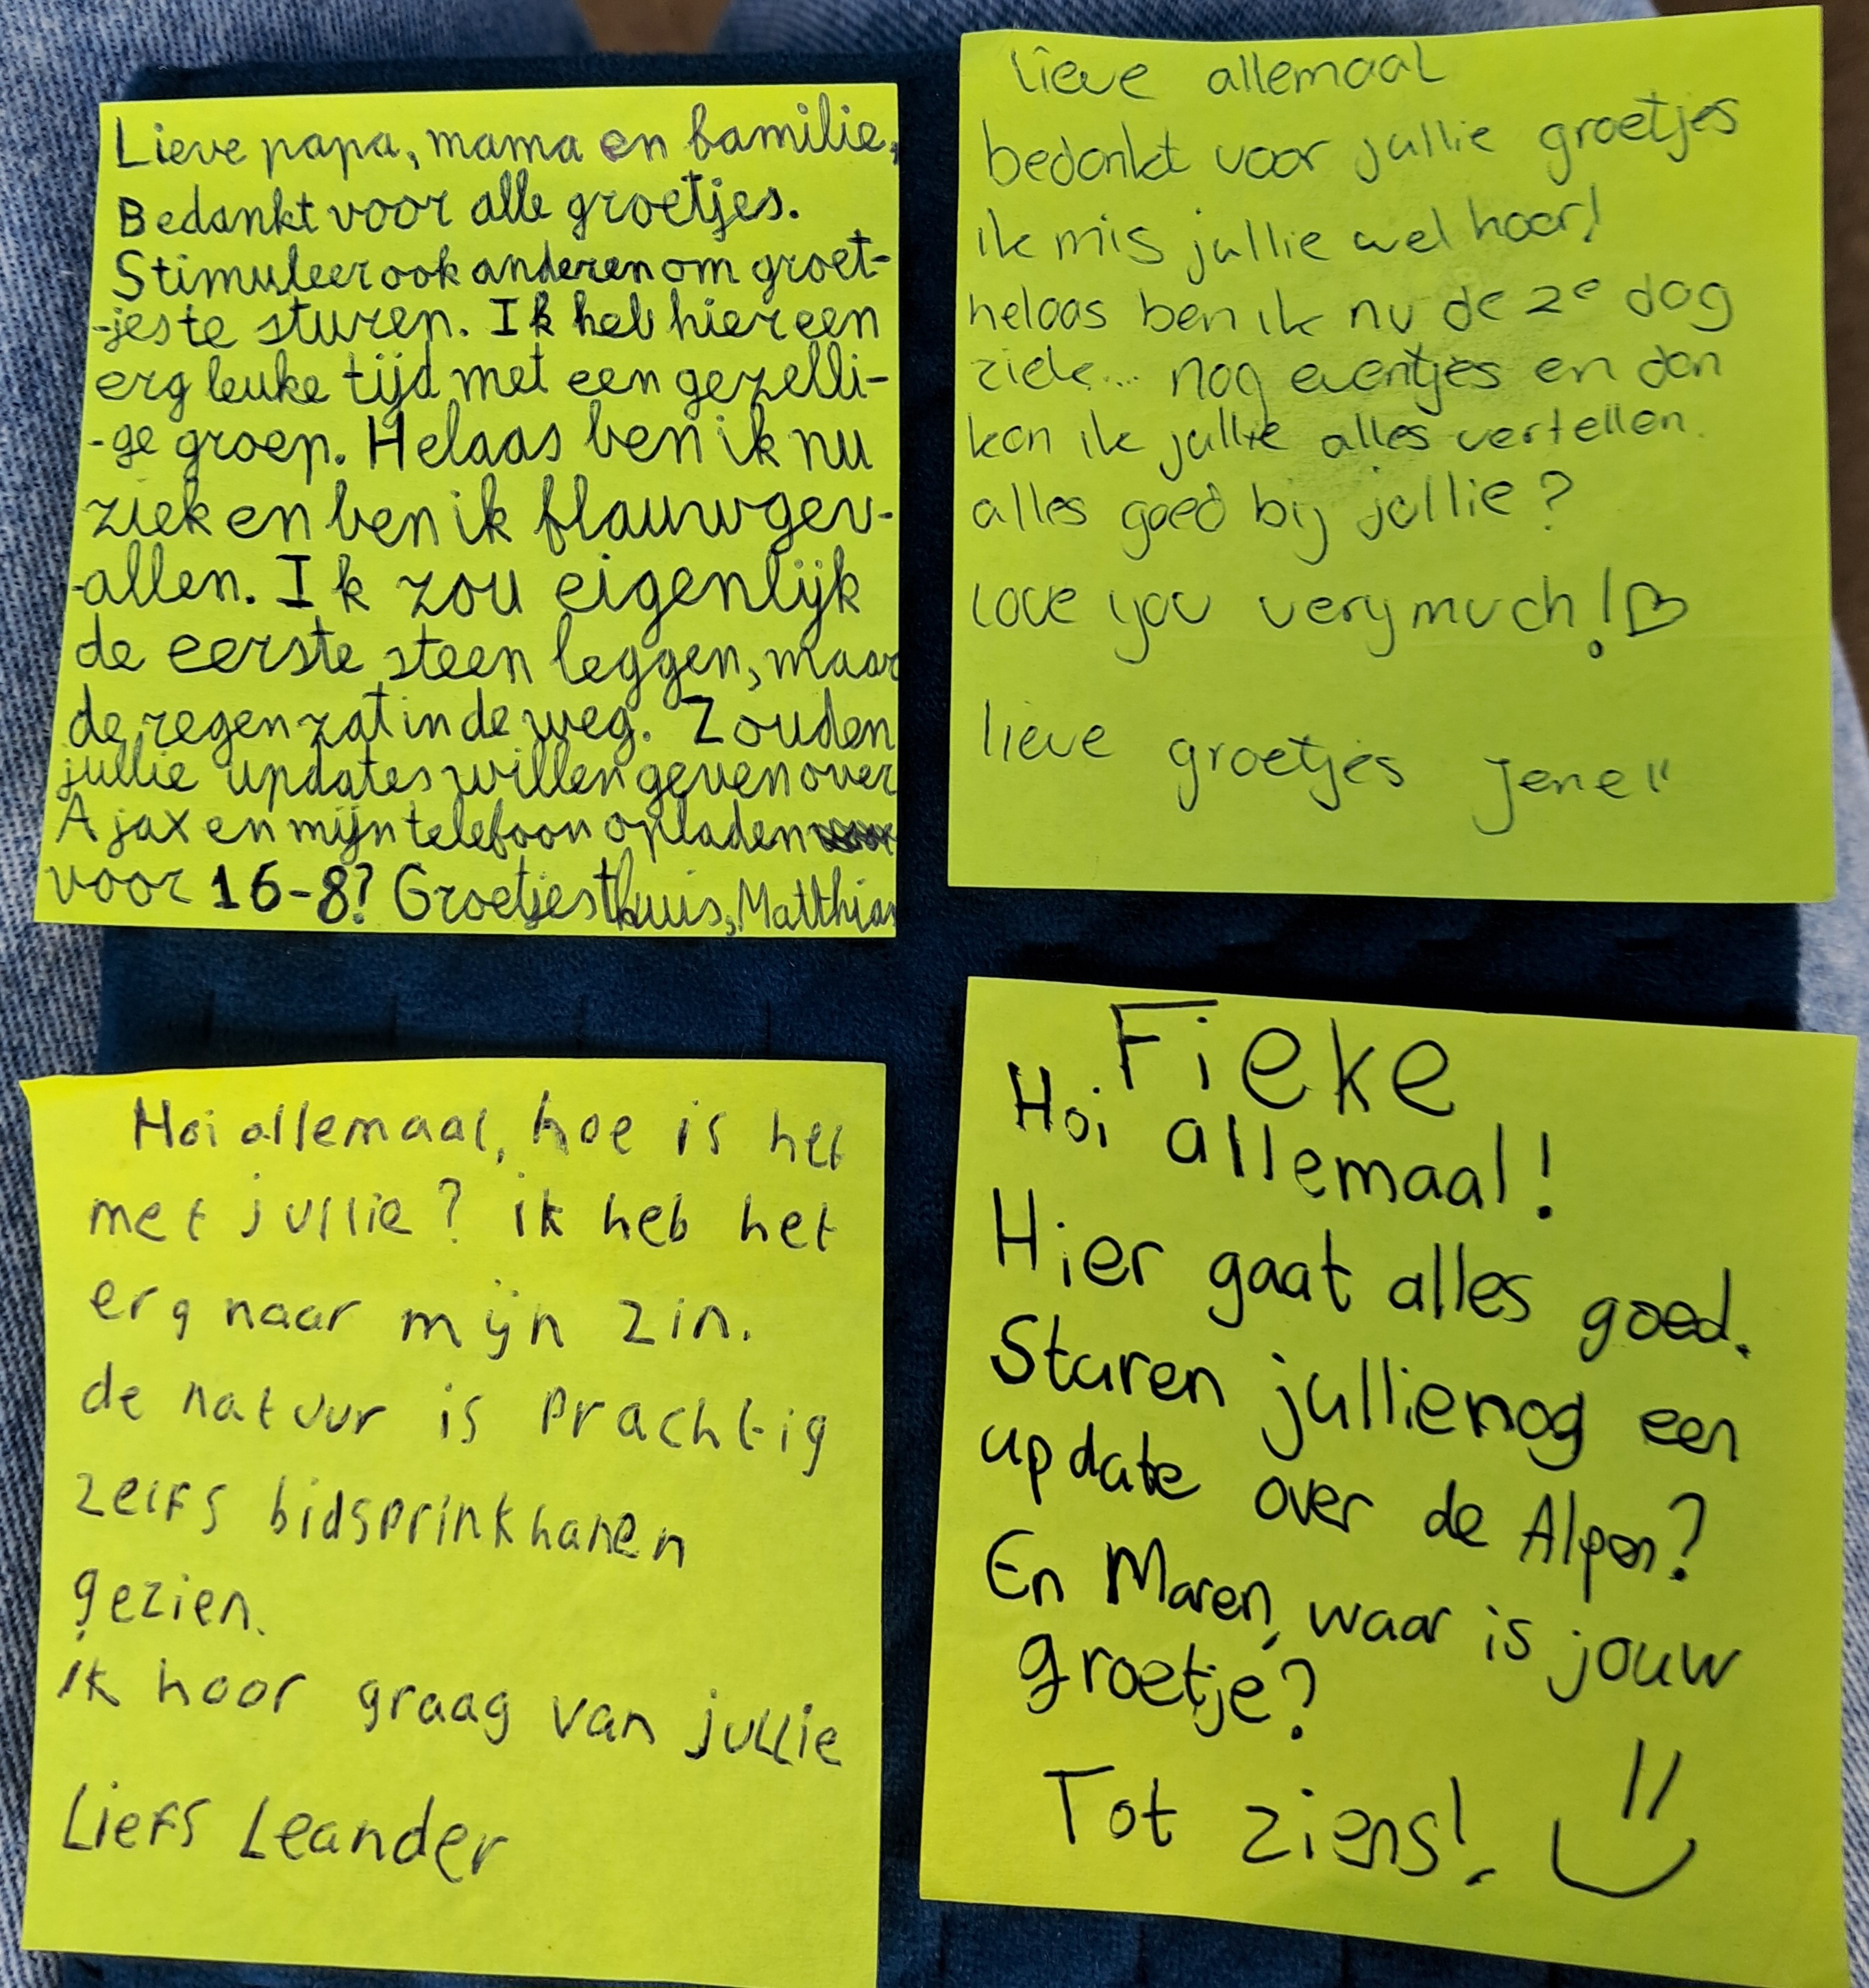 Lieve papa, mama en familie,
Bedankt voor alle groetjes.
Stimuleer ook anderen om groet-
-jes te sturen. Ik heb hier een
erg leuke tijd met een gezelli-
-ge groep. Helaas ben ik nu
ziek en ben ik flauwgev-
-allen. Ik zou eigenlijk
de eerste steen leggen, maar
de regen zat in de weg. Zouden
jullie updates willen geven over
Ajax en mijn telefoon opladen
voor 16-8? Groetjes thuis, Matthias
lieve allemaal
bedankt voor jullie groetjes
ik mis jullie wel hoor!
helaas ben ik nu de 2e dag
ziek... nog eventjes en dan
kan ik jullie alles vertellen.
alles goed bij jullie?
love you very much! ♡
lieve groetjes
Hoi allemaal, hoe is het
met jullie? ik heb het
erg naar mijn zin.
de natuur is prachtig
zelfs bidsprinkhanen
gezien.
ik hoor graag van jullie
Liefs Leander
Fieke
Hoi allemaal!
Hier gaat alles goed.
Sturen jullie nog een
update over de Alpen?
En Maren, waar is jouw
groetje?
Tot ziens!